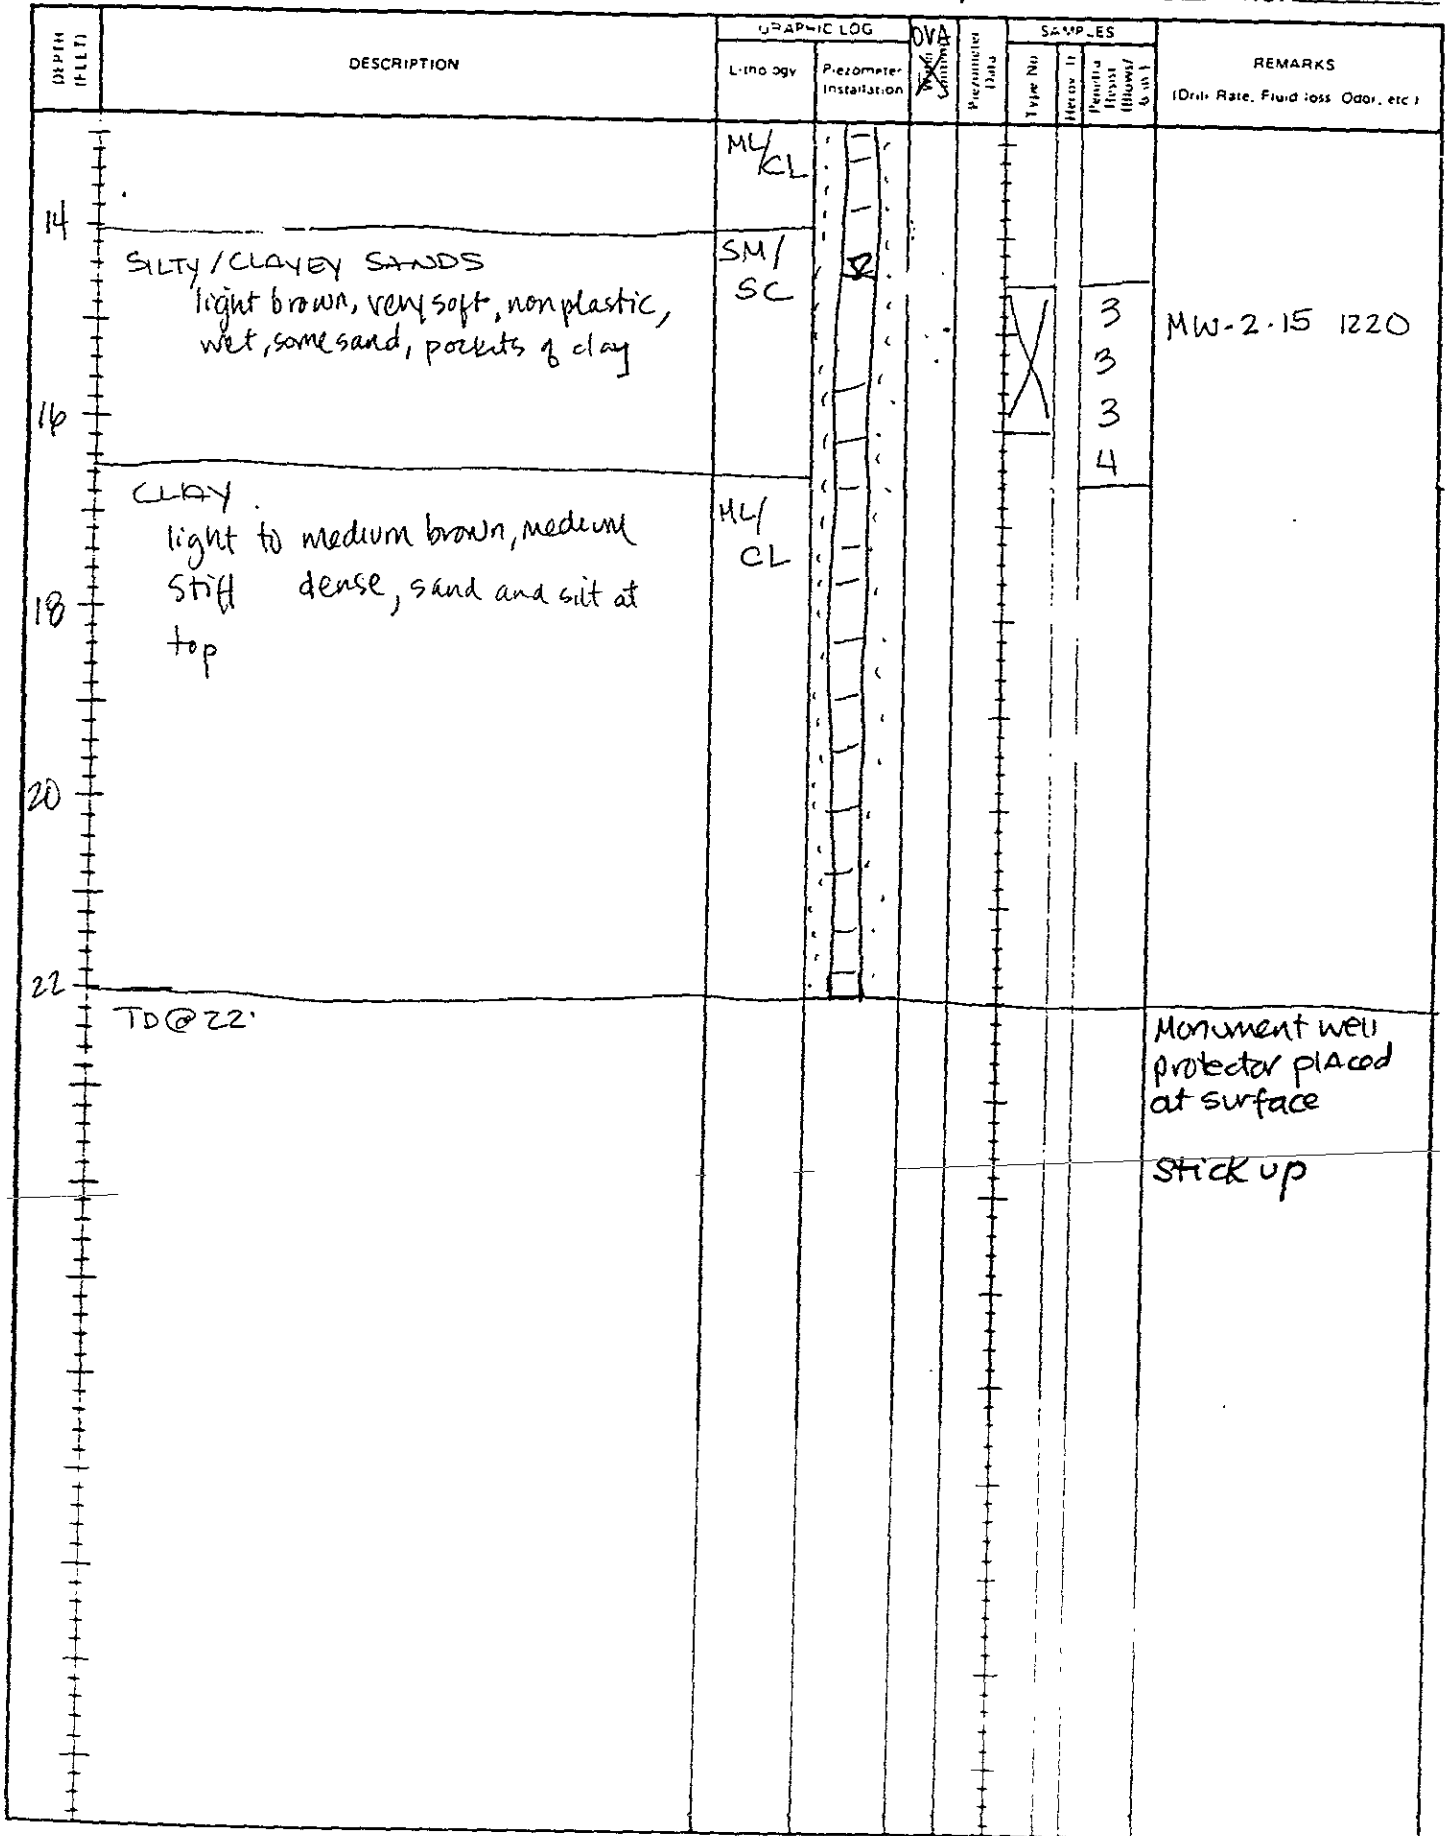 DEPTH (FEET)
DESCRIPTION
GRAPHIC LOG
Lithology
Piezometer Installation
OVA
Piezometer Data
SAMPLES
Type No
Recov
REMARKS
(Drill Rate, Fluid loss, Odor, etc)
ML/CL
14
SILTY/CLAYEY SANDS
light brown, very soft, nonplastic,
wet, some sand, pockets of clay
SM/
SC
3
3
3
4
MW-2-15 1220
16
CLAY
light to medium brown, medium
stiff dense, sand and silt at
top
ML/
CL
18
20
22
TD@22'
Monument well
protector placed
at surface
Stick up